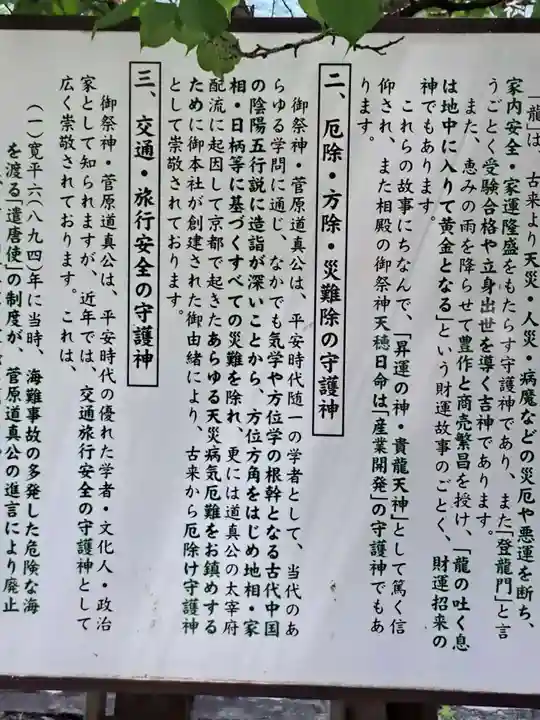 「龍」は、古来より天災・人災・病魔などの災厄や悪運を断ち、
家内安全・家運隆盛をもたらす守護神であり、また「登龍門」と言
うごとく受験合格や立身出世を導く吉神であります。
また、恵みの雨を降らせて豊作と商売繁昌を授け、「龍の吐く息
は地中に入りて黄金となる」という財運故事のごとく、財運招来の
神でもあります。
これらの故事にちなんで、「昇運の神・貴龍天神」として篤く信
仰され、また相殿の御祭神天穂日命は「産業開発」の守護神でもあ
ります。
二、厄除・方除・災難除の守護神
御祭神・菅原道真公は、平安時代随一の学者として、当代のあ
らゆる学問に通じ、なかでも気学や方位学の根幹となる古代中国
の陰陽五行説に造詣が深いことから、方位方角をはじめ地相・家
相・日柄等に基づくすべての災難を除れ、更には道真公の太宰府
配流に起因して京都で起きたあらゆる天災病気厄難をお鎮めする
ために御本社が創建された御由緒により、古来から厄除け守護神
として崇敬されております。
三、交通・旅行安全の守護神
御祭神・菅原道真公は、平安時代の優れた学者・文化人・政治
家として知られますが、近年では、交通旅行安全の守護神として
広く崇敬されております。これは、
（一）寛平六（八九四）年に当時、海難事故の多発した危険な海
を渡る「遣唐使」の制度が、菅原道真公の進言により廃止